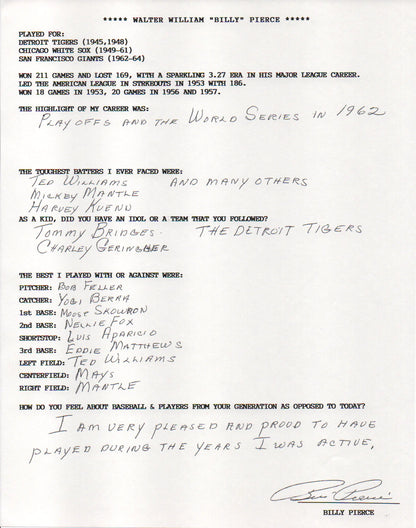 ***** WALTER WILLIAM "BILLY" PIERCE *****
PLAYED FOR:
DETROIT TIGERS (1945,1948)
CHICAGO WHITE SOX (1949-61)
SAN FRANCISCO GIANTS (1962-64)
WON 211 GAMES AND LOST 169, WITH A SPARKLING 3.27 ERA IN HIS MAJOR LEAGUE CAREER.
LED THE AMERICAN LEAGUE IN STRKEOUTS IN 1953 WITH 186.
WON 18 GAMES IN 1953, 20 GAMES IN 1956 AND 1957.
THE HIGHLIGHT OF MY CAREER WAS:
PLAYOFFS AND THE WORLD SERIES IN 1962
THE TOUGHEST BATTERS I EVER FACED WERE:
TED WILLIAMS AND MANY OTHERS
MICKEY MANTLE
HARVEY KUENN
AS A KID, DID YOU HAVE AN IDOL OR A TEAM THAT YOU FOLLOWED?
TOMMY BRIDGES. THE DETROIT TIGERS
CHARLEY GERINGHER
THE BEST I PLAYED WITH OR AGAINST WERE:
PITCHER: BOB FELLER
CATCHER: YOGI BERRA
1st BASE: MOOSE SKOWRON
2nd BASE: NELLIE FOX
SHORTSTOP: LUIS APARICIO
3rd BASE: EDDIE MATTHEWS
LEFT FIELD: TED WILLIAMS
CENTERFIELD: MAYS
RIGHT FIELD: MANTLE
HOW DO YOU FEEL ABOUT BASEBALL & PLAYERS FROM YOUR GENERATION AS OPPOSED TO TODAY?
I AM VERY PLEASED AND PROUD TO HAVE
PLAYED DURING THE YEARS I WAS ACTIVE.
Billy Pierce
BILLY PIERCE